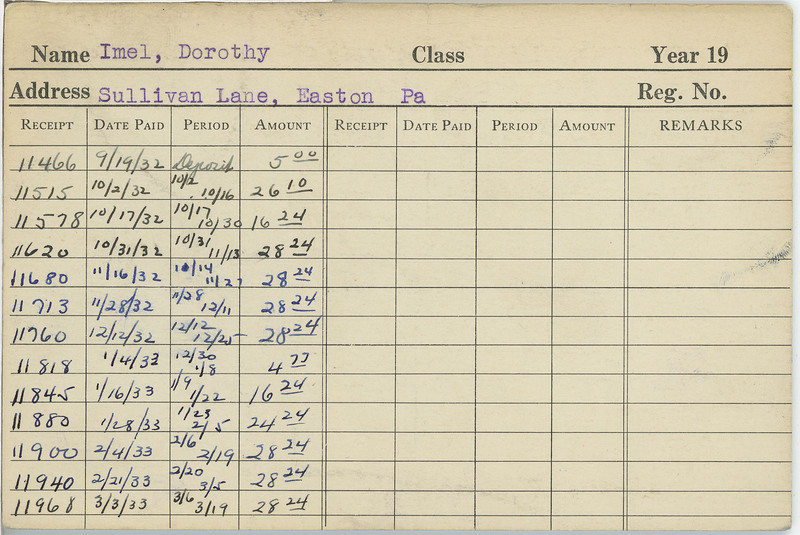 Name Imel, Dorothy Class Year 19
Address Sullivan Lane, Easton Pa Reg. No.
RECEIPT DATE PAID PERIOD AMOUNT RECEIPT DATE PAID PERIOD AMOUNT REMARKS
11466 9/19/32 Deposit 5 00
11515 10/2/32 10/2 10/16 26 10
11578 10/17/32 10/17 10/30 16 24
11620 10/31/32 10/31 11/13 28 24
11680 11/16/32 10/14 11/27 28 24
11713 11/28/32 11/28 12/11 28 24
11760 12/12/32 12/12 12/25 28 24
11818 1/4/33 12/30 1/8 4 77
11845 1/16/33 1/9 1/22 16 24
11880 1/28/33 1/23 2/5 24 24
11900 2/4/33 2/6 2/19 28 24
11940 2/21/33 2/20 3/5 28 24
11968 3/3/33 3/6 3/19 28 24